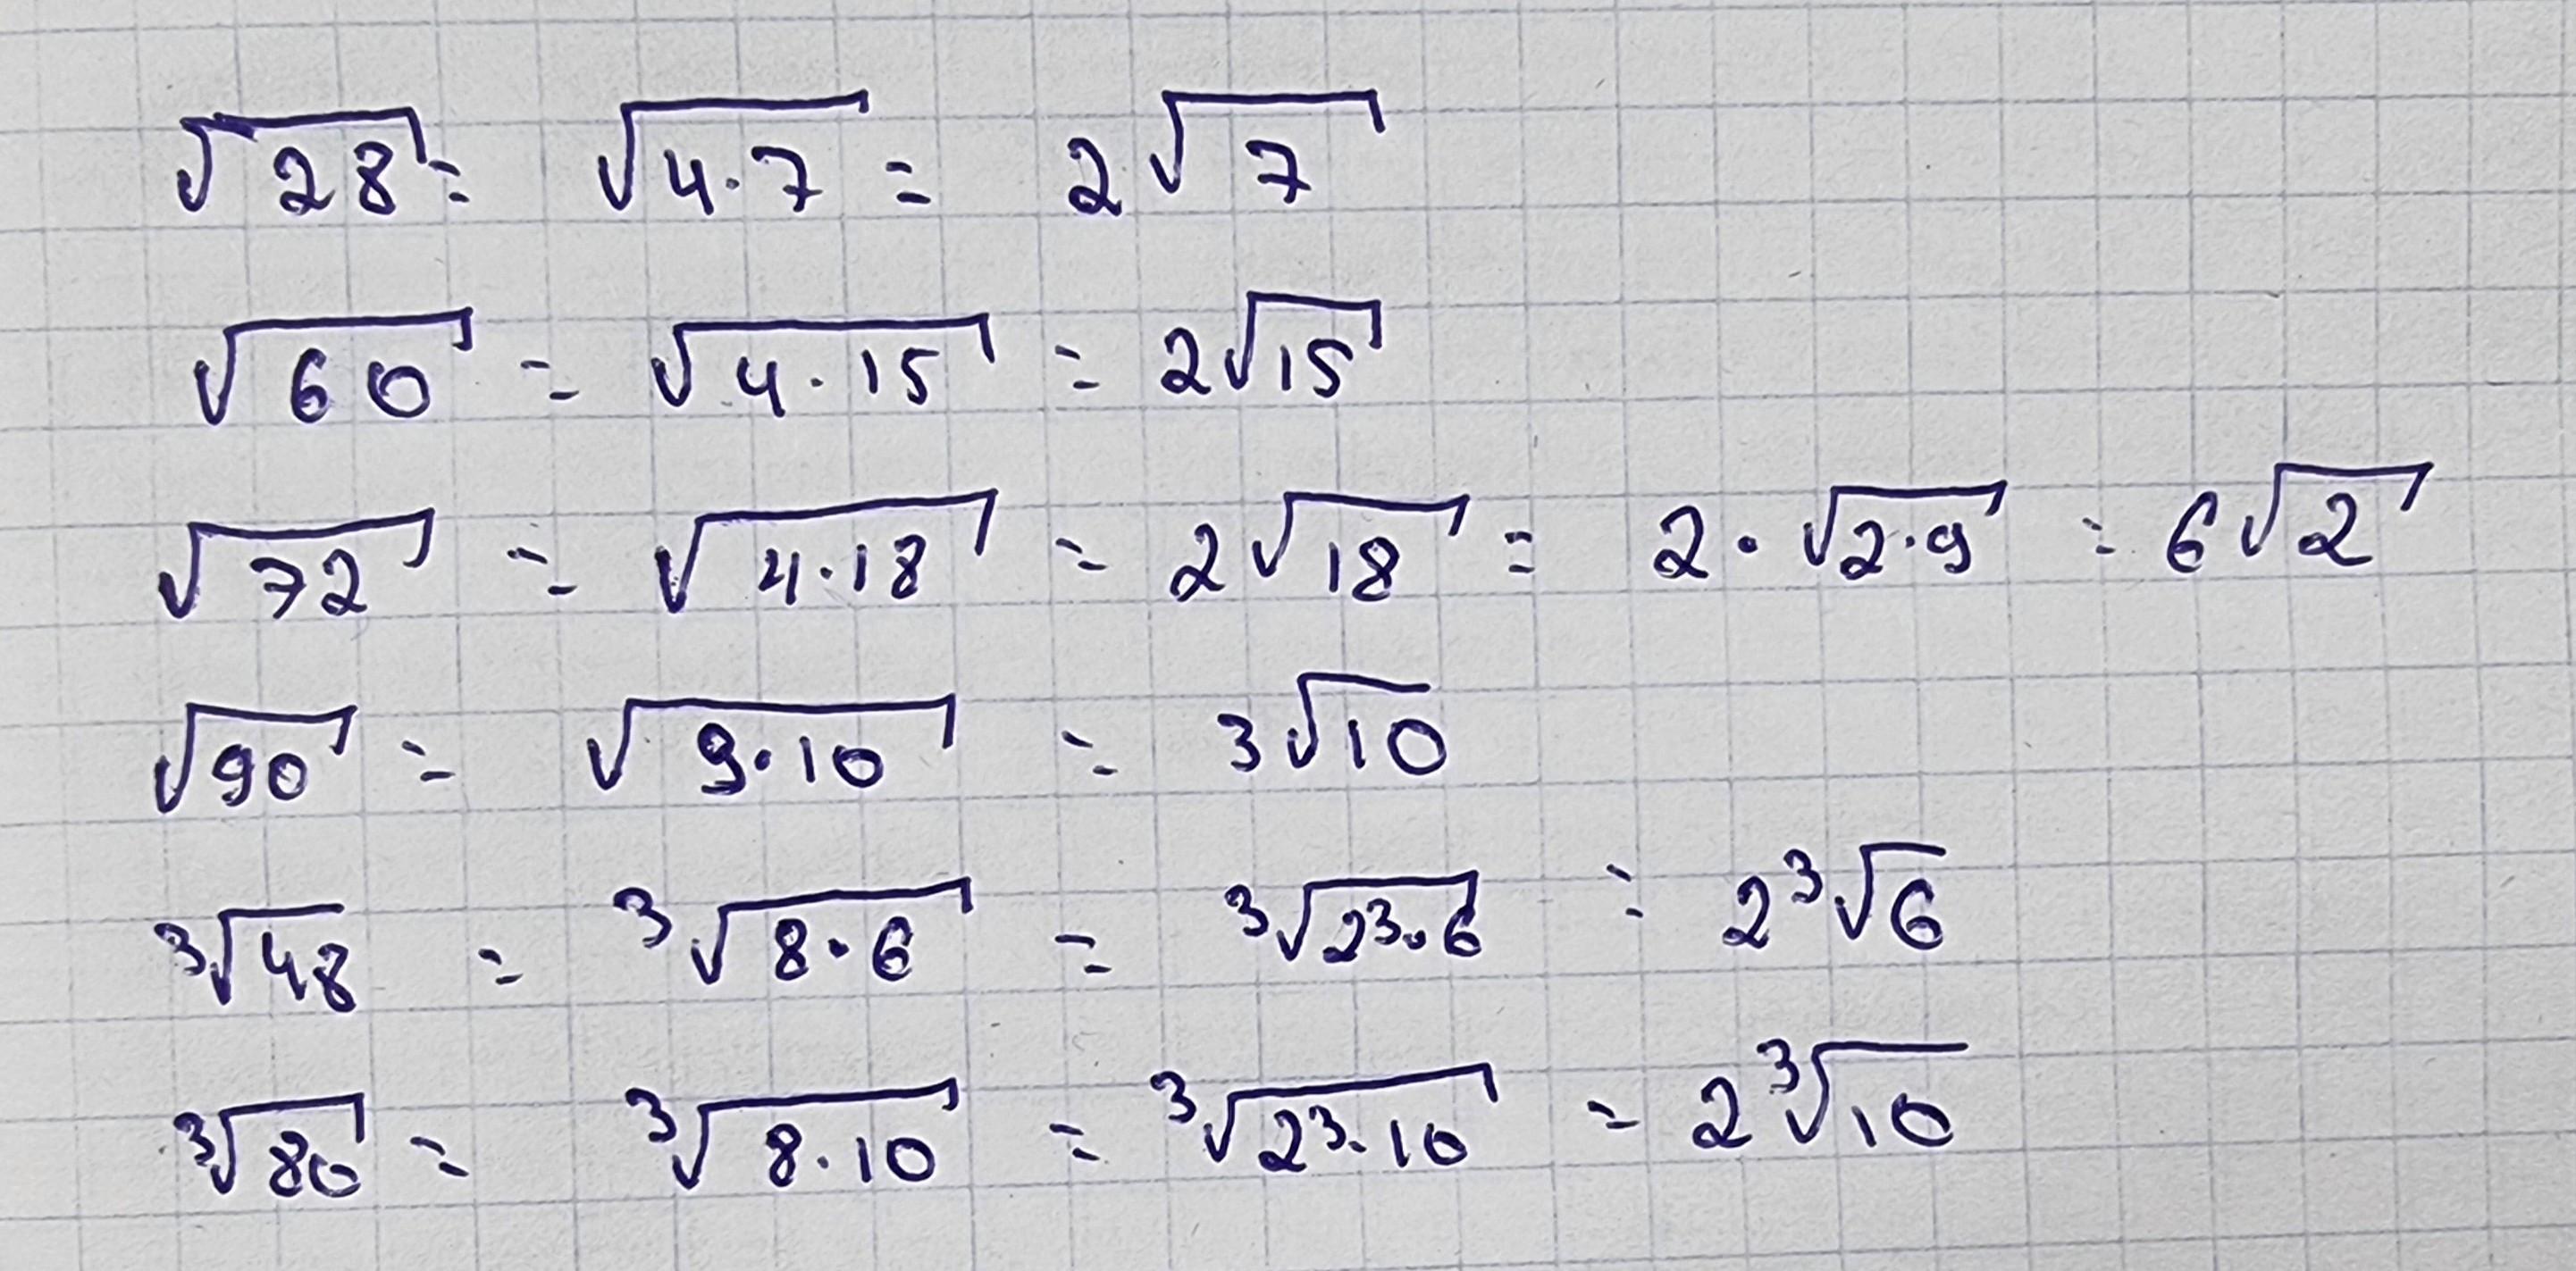 √28 = √4·7 = 2√7
√60 = √4·15 = 2√15
√72 = √4·18 = 2√18 = 2·√2·9 = 6√2
√90 = √9·10 = 3√10
³√48 = ³√8·6 = ³√2³·6 = 2³√6
³√80 = ³√8·10 = ³√2³·10 = 2³√10